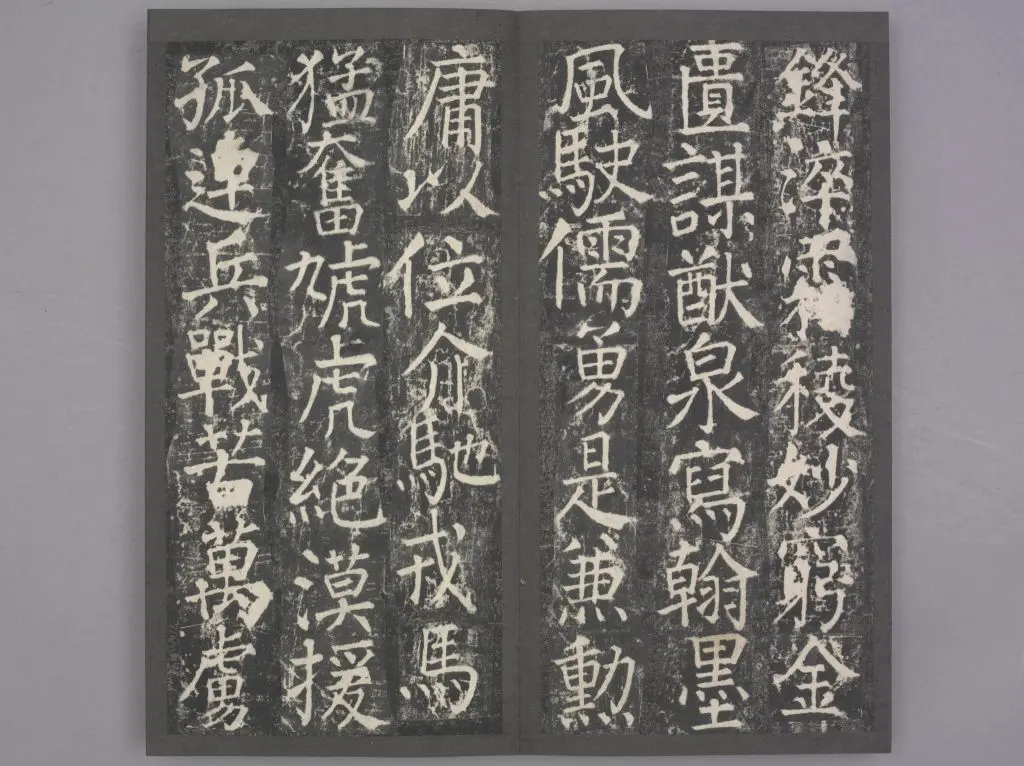 鋒淬稜妙窮金
匱謀猷泉寫翰墨
風駛儒勇是兼勳
庸以位介馳戎馬
猛奮虓虎絕漠援
孤連兵戰苦萬虜